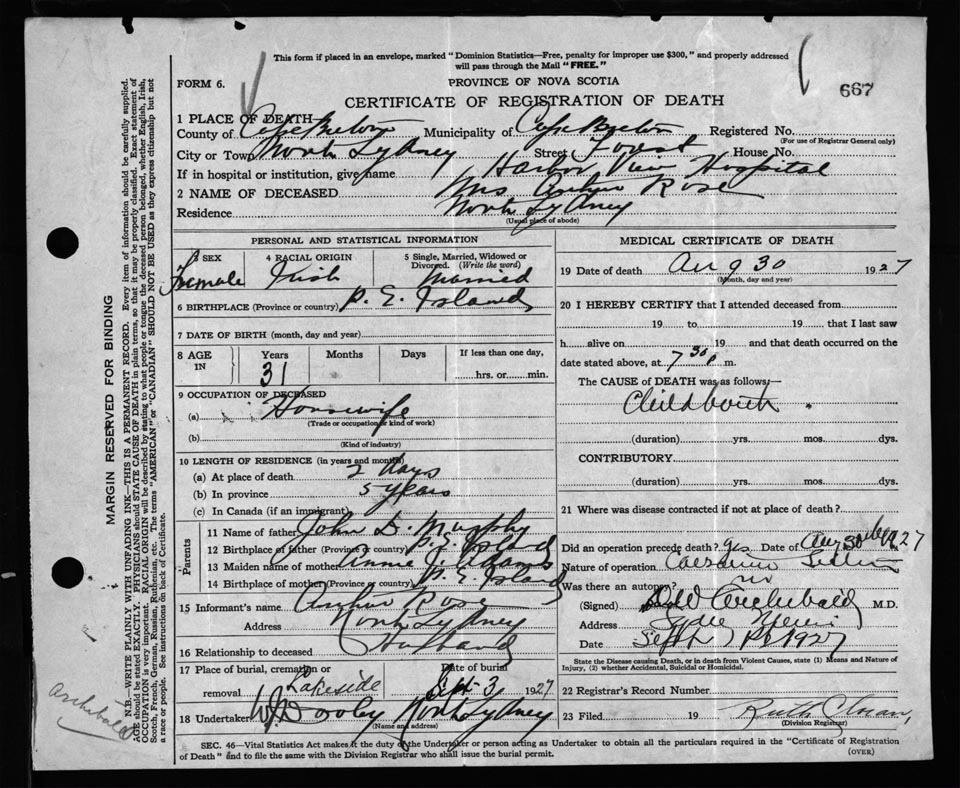 This form if placed in an envelope, marked "Dominion Statistics—Free, penalty for improper use $300," and properly addressed
will pass through the Mail "FREE."
FORM 6.
PROVINCE OF NOVA SCOTIA
667
CERTIFICATE OF REGISTRATION OF DEATH
1 PLACE OF DEATH
County of Cape Breton Municipality of Cape Breton Registered No.
(For use of Registrar General only)
City or Town North Sydney Street Forest House No.
If in hospital or institution, give name Harbor View Hospital
2 NAME OF DECEASED Mrs Arthur Rose
Residence North Sydney
(Usual place of abode)
PERSONAL AND STATISTICAL INFORMATION
3 SEX 4 RACIAL ORIGIN 5 Single, Married, Widowed or
Divorced. (Write the word)
Female Irish Married
6 BIRTHPLACE (Province or country) P. E. Island
7 DATE OF BIRTH (month, day and year)
8 AGE IN Years Months Days If less than one day,
31 hrs. or min.
9 OCCUPATION OF DECEASED
(a) Housewife
(Trade or occupation or kind of work)
(b)
(Kind of industry)
10 LENGTH OF RESIDENCE (in years and months)
(a) At place of death 2 days
(b) In province 5 years
(c) In Canada (if an immigrant)
Parents
11 Name of father John D. Murphy
12 Birthplace of father (Province or country) P. E. Island
13 Maiden name of mother Annie
14 Birthplace of mother (Province or country) P. E. Island
15 Informant's name Arthur Rose
Address North Sydney
16 Relationship to deceased Husband
17 Place of burial, cremation or Date of burial
removal Lakeside Sept 3 1927
18 Undertaker North Sydney
(Name and address)
MEDICAL CERTIFICATE OF DEATH
19 Date of death Aug 30 1927
(Month, day and year)
20 I HEREBY CERTIFY that I attended deceased from
19 to 19 that I last saw
h alive on 19 and that death occurred on the
date stated above, at 7 30 p m.
The CAUSE OF DEATH was as follows:—
Childbirth
(duration) yrs. mos. dys.
CONTRIBUTORY
(duration) yrs. mos. dys.
21 Where was disease contracted if not at place of death?
Did an operation precede death? yes Date of Aug 30 1927
Nature of operation Caesarian Section
Was there an autopsy? no
(Signed) Archibald M.D.
Address
Date Sept 1st 1927
State the Disease causing Death, or in death from Violent Causes, state (1) Means and Nature of
Injury, (2) whether Accidental, Suicidal or Homicidal.
22 Registrar's Record Number
23 Filed 19 Ruth
(Division Registrar)
SEC. 46—Vital Statistics Act makes it the duty of the Undertaker or person acting as Undertaker to obtain all the particulars required in the "Certificate of Registration
of Death" and to file the same with the Division Registrar who shall issue the burial permit.
(OVER)
MARGIN RESERVED FOR BINDING
N.B.—WRITE PLAINLY WITH UNFADING INK—THIS IS A PERMANENT RECORD. Every item of information should be carefully supplied.
AGE should be stated EXACTLY. PHYSICIANS should STATE CAUSE OF DEATH in plain terms, so that it may be properly classified. Exact statement of
OCCUPATION is very important. RACIAL ORIGIN will be described by stating to what people or tongue the deceased person belonged, whether English, Irish,
Scotch, French, German, Russian, Ruthenian, etc. The terms "AMERICAN" or "CANADIAN" SHOULD NOT BE USED as they express citizenship but not
a race or people. See instructions on back of Certificate
Archibald